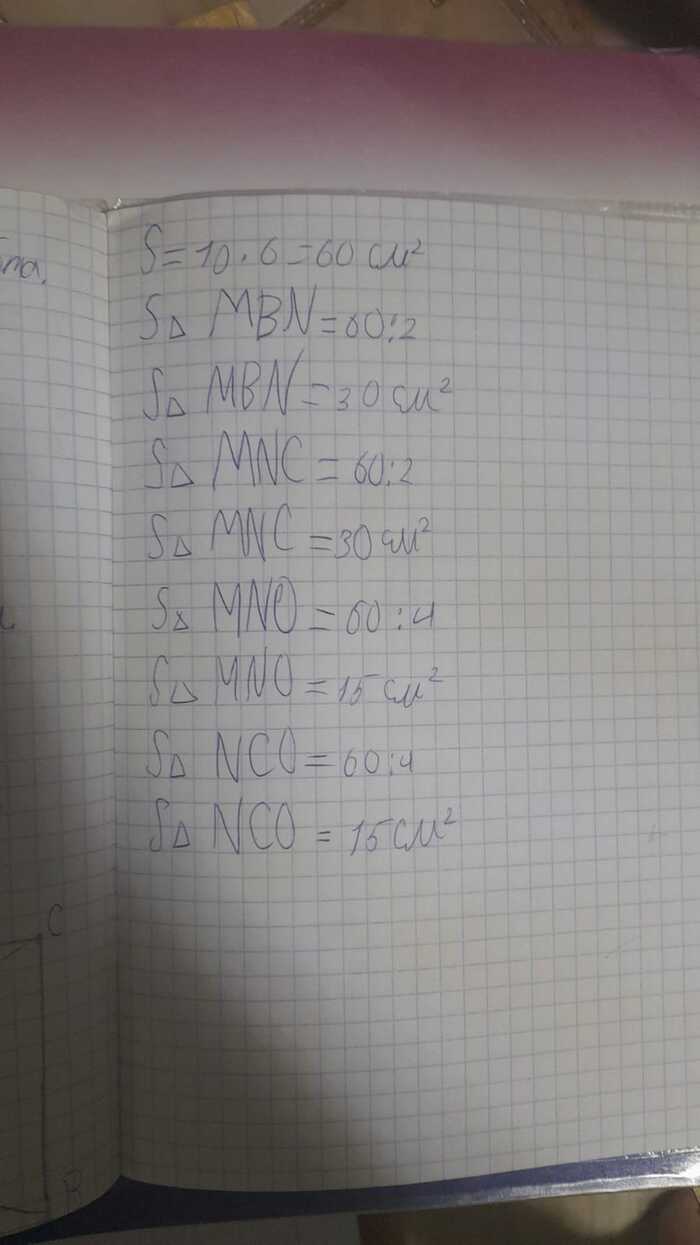 та.
S = 10 · 6 = 60 см²
S△ MBN = 60 : 2
S△ MBN = 30 см²
S△ MNC = 60 : 2
S△ MNC = 30 см²
S△ MNO = 60 : 4
S△ MNO = 15 см²
S△ NCO = 60 : 4
S△ NCO = 15 см²
C